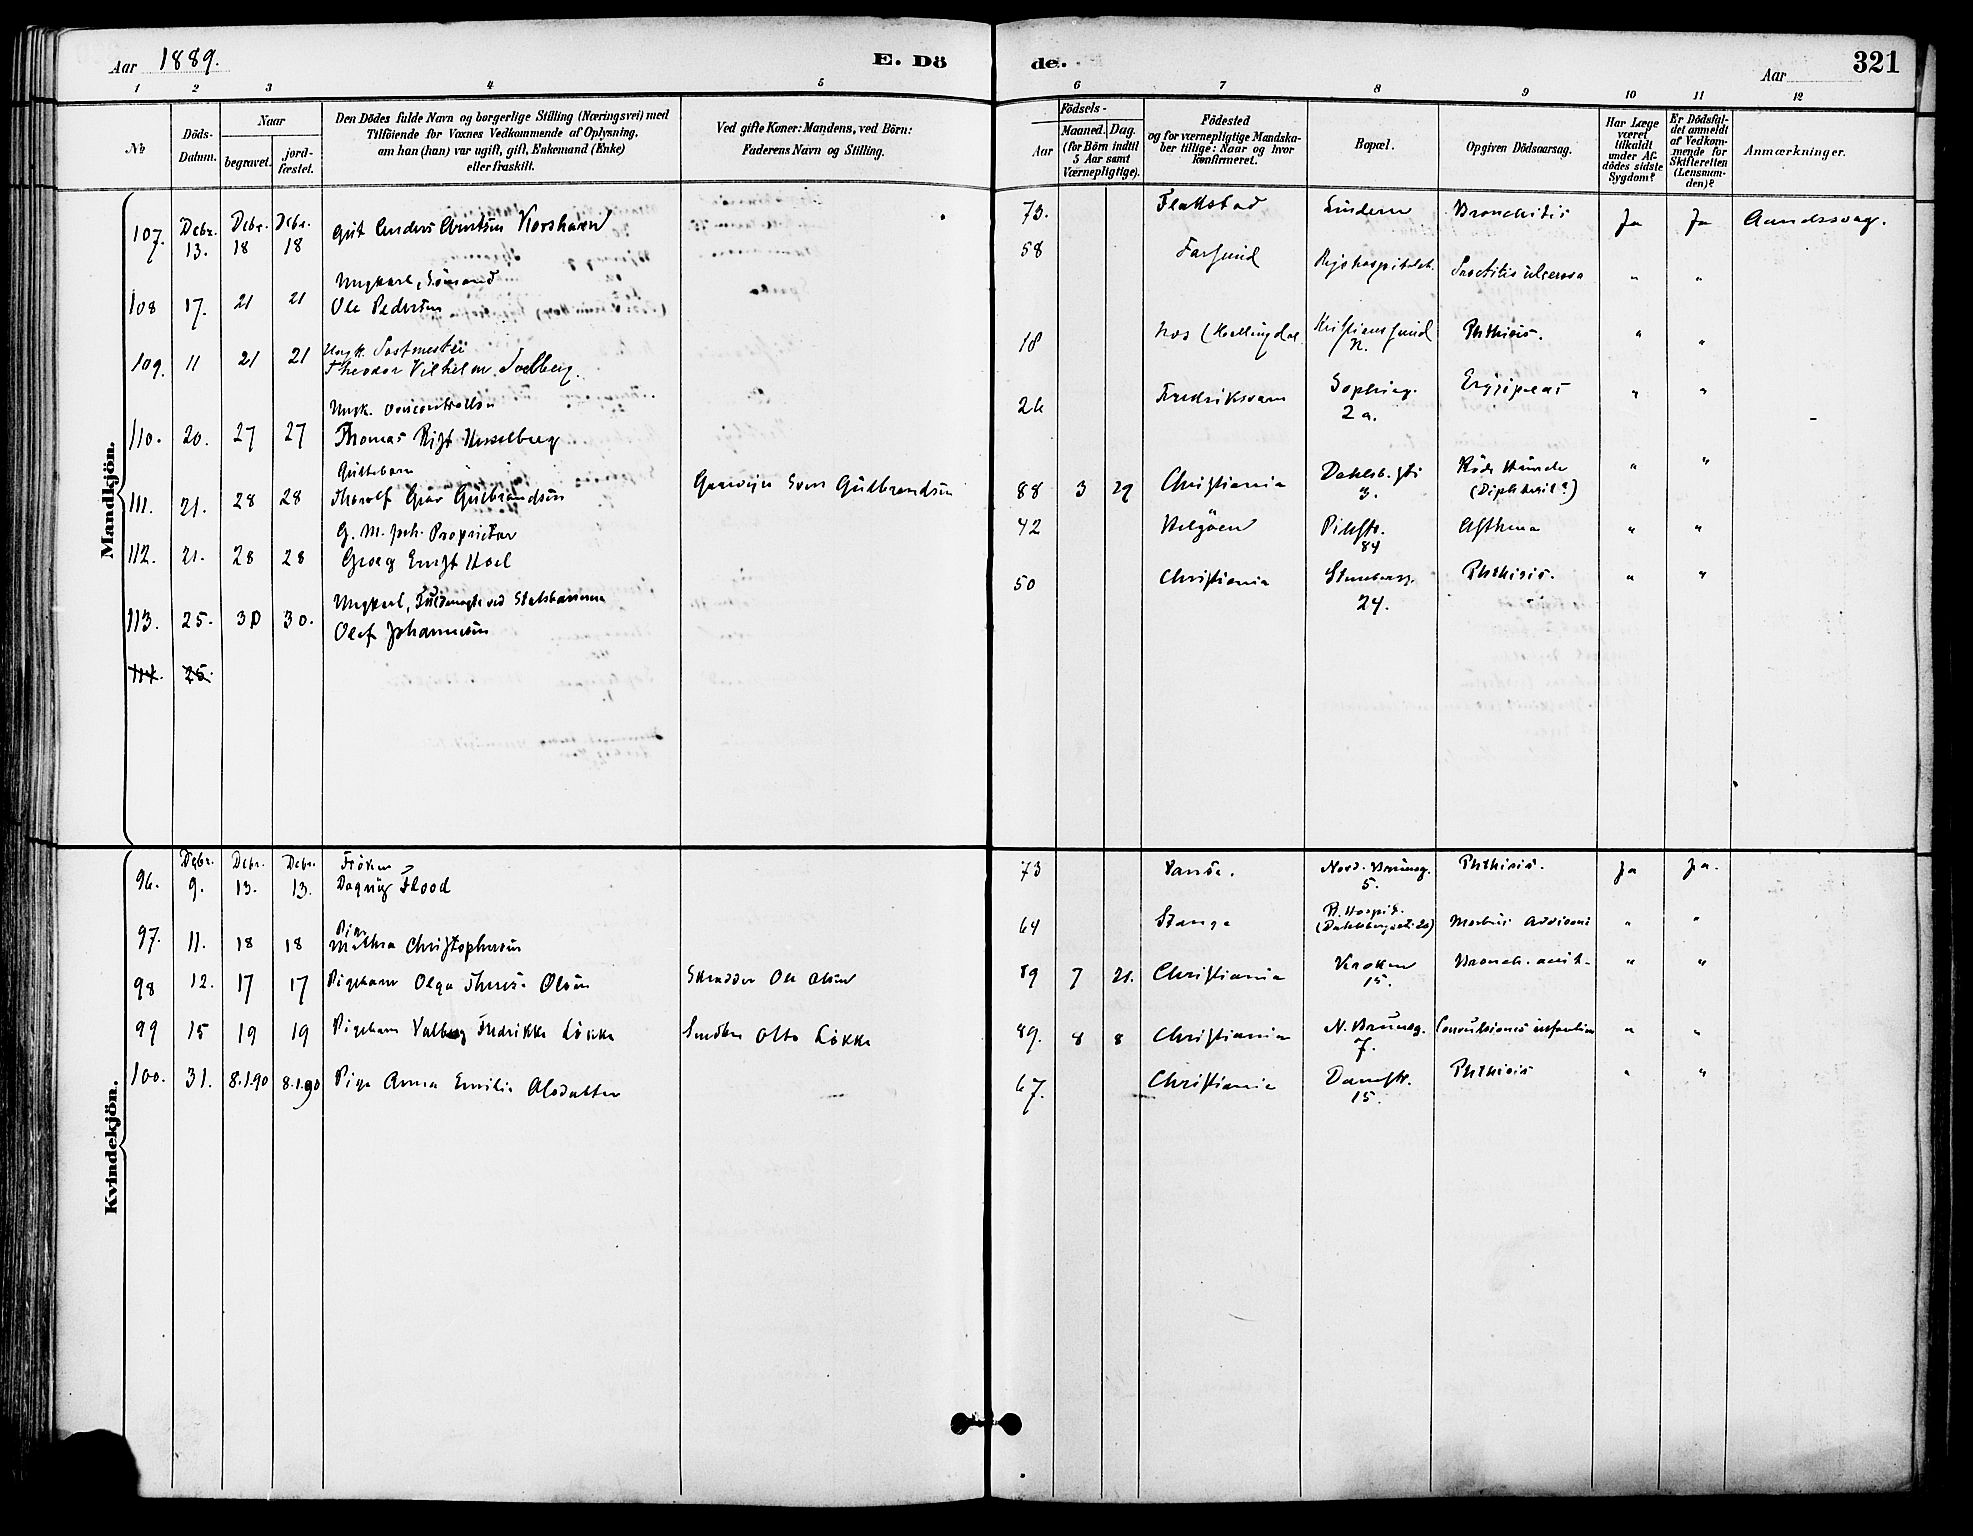 Aar 1889. E. Dö de. Aar 321
1 2 3 4 5 6 7 8 9 10 11 12
No Döds-Datum. Naar begravet. jord-fæstet.
Den Dödes fulde Navn og borgerlige Stilling (Næringsvei) med
Tilföiende for Voxnes Vedkommende af Oplysning,
om han (hun) var ugift, gift, Enkemand (Enke)
eller fraskilt.
Ved gifte Koner: Mandens, ved Börn:
Faderens Navn og Stilling.
Födsels-
Aar Maaned. Dag.
(for Börn indtil
5 Aar samt
Værnepligtige).
Födested
og for værnepligtige Mandska-
ber tillige: Naar og hvor
konfirmeret.
Bopæl.
Opgiven Dödsaarsag.
Har Læge
været
tilkaldt
under Af-
dödes sidste
Sygdom?
Er Dödsfal-
det anmeldt
af Vedkom-
mende for
Skifteretten
(Lensman-
den)?
Anmærkninger.
Mandkjön.
107. Dcbr. 13. Dcbr. 18 Dcbr. 18 Gut Anders Arntsen Korshavn 73. Flakstad Lindern Bronchitis Ja Ja Aandssvag.
108 17. 21 21 Ungkarl, Sömand
Ole Pedersen 58 Farsund Rigshospitalet. Proctitis ulcerosa " "
109. 11 21 21 Ungk. Postmester
Theodor Vilhelm Solberg. 18 Næs (Hallingdal Kristianssund N. Phthisis. " "
110. 20. 27 27 Ungk.
Thomas Hesselberg 26 Fredriksværn Sophieg. 2 a. Erysipelas " "
111. 21. 28 28 Guttebarn
Thorolf Guldbrandsen Sven Guldbrandsen 88 3 29 Christiania Dahlsb.sti 3. Röde Hunde
(Diphtherit?) " "
112. 21. 28 28 G. M. fnh. Proprietær
Georg Ernst Hoel 42 Helgöen Pilestr. 84 Asthma " "
113. 25. 30 30. Ungkarl, Fuldmægt. ved Statsbanerne
Olaf Johannesen 50 Christiania Stensbergg. 24. Phthisis. " "
114. 25.
Kvindekjön.
96. Dcbr. 9. Dcbr. 13. Dcbr. 13. Fröken
Dagny Flood 73 Vansö. Nord. Bruunsg. 5. Phthisis. Ja Ja.
97. 11. 18 18 Pige
Mathea Christophersen 64 Stange R. Hospit.
(Dahlsbergsti 20) Morbus Addisoni " "
98 12. 17 17 Pigebarn Olga Therese Olsen Skrædder Ole Olsen 89 7 21. Christiania Kroken 15. Bronch. acut. " "
99 15 19 19 Pigebarn Valborg Fredrikke Lökke Snedker Otto Lökke 89. 8 8 Christiania N. Bruunsg. 7. Convulsiones infantium " "
100. 31. 8.1.90 8.1.90 Pige Anna Emilie Olsdatter 67. Christiania Damstr. 15. Phthisis " "